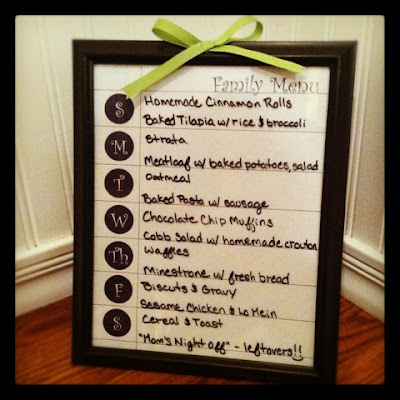 Family Menu
S
Homemade Cinnamon Rolls
Baked Tilapia w/ rice & broccoli
M
Strata
Meatloaf w/ baked potatoes, salad
T
Oatmeal
Baked Pasta w/ sausage
W
Chocolate Chip Muffins
Cobb Salad w/ homemade crouton
Th
Waffles
Minestrone w/ fresh bread
F
Biscuts & Gravy
Sesame Chicken & Lo Mein
S
Cereal & Toast
"Mom's Night Off" - leftovers!!